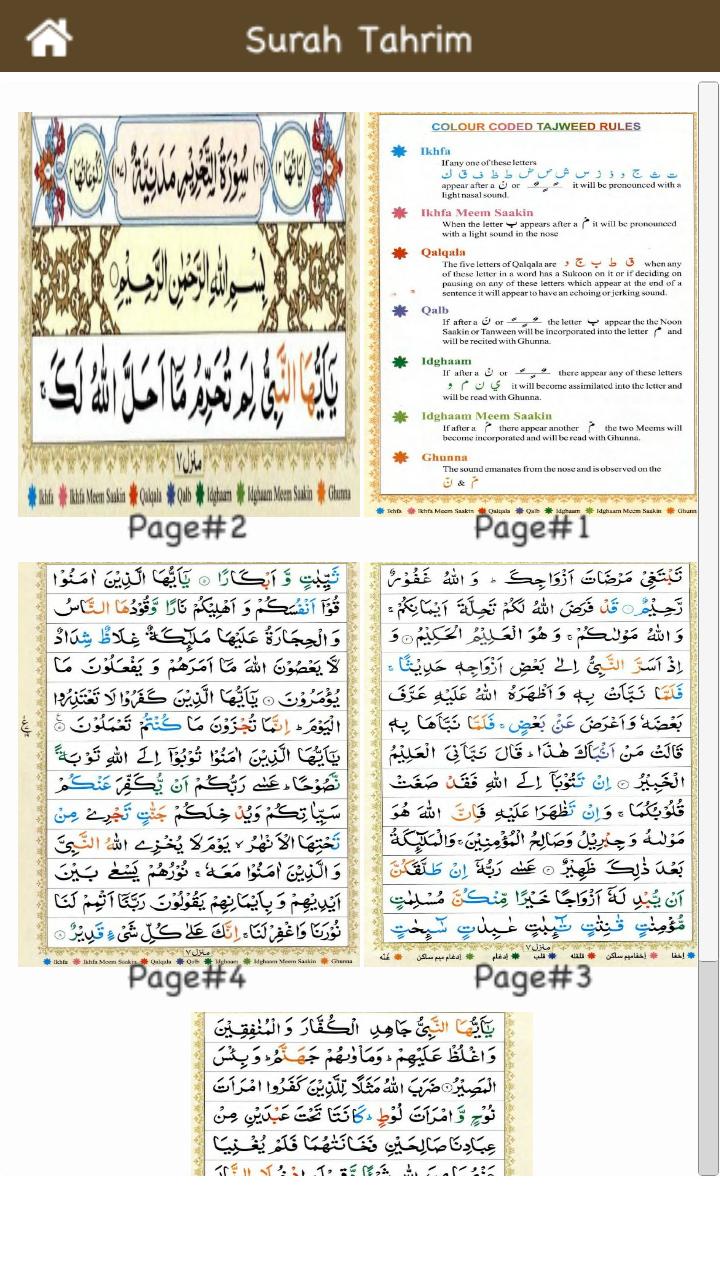 Surah Tahrim
COLOUR CODED TAJWEED RULES
Ikhfa
If any one of these letters
ت ث ج د ذ ز س ش ص ض ط ظ ف ق ك
appear after a نْ or ـًـ ـٍـ ـٌـ it will be pronounced with a
light nasal sound.
Ikhfa Meem Saakin
When the letter ب appears after a مْ it will be pronounced
with a light sound in the nose
Qalqala
The five letters of Qalqala are ق ط ب ج د when any
of these letter in a word has a Sukoon on it or if deciding on
pausing on any of these letters which appear at the end of a
sentence it will appear to have an echoing or jerking sound.
Qalb
If after a نْ or ـًـ ـٍـ ـٌـ the letter ب appear the the Noon
Saakin or Tanween will be incorporated into the letter م and
will be recited with Ghunna.
Idghaam
If after a نْ or ـًـ ـٍـ ـٌـ there appear any of these letters
ي ن م و it will become assimilated into the letter and
will be read with Ghunna.
Idghaam Meem Saakin
If after a مْ there appear another مْ the two Meems will
become incorporated and will be read with Ghunna.
Ghunna
The sound emanates from the nose and is observed on the
نّ & مّ
Ikhfa Ikhfa Meem Saakin Qalqala Qalb Idghaam Idghaam Meem Saakin Ghunna
Page#1
سُوْرَةُ التَّحْرِيْمِ مَدَنِيَّةٌ
بِسْمِ اللهِ الرَّحْمٰنِ الرَّحِيْمِ
يٰٓاَيُّهَا النَّبِىُّ لِمَ تُحَرِّمُ مَآ اَحَلَّ اللهُ لَكَ ۚ
منزل ٧
Ikhfa Ikhfa Meem Saakin Qalqala Qalb Idghaam Idghaam Meem Saakin Ghunna
Page#2
تَبْتَغِىْ مَرْضَاتَ اَزْوَاجِكَ ؕ وَ اللهُ غَفُوْرٌ
رَّحِيْمٌ ۝ قَدْ فَرَضَ اللهُ لَكُمْ تَحِلَّةَ اَيْمَانِكُمْ ۚ
وَ اللهُ مَوْلٰىكُمْ ۚ وَ هُوَ الْعَلِيْمُ الْحَكِيْمُ ۝ وَ
اِذْ اَسَرَّ النَّبِىُّ اِلٰى بَعْضِ اَزْوَاجِهٖ حَدِيْثًا ۚ
فَلَمَّا نَبَّاَتْ بِهٖ وَ اَظْهَرَهُ اللهُ عَلَيْهِ عَرَّفَ
بَعْضَهٗ وَ اَعْرَضَ عَنْۢ بَعْضٍ ۚ فَلَمَّا نَبَّاَهَا بِهٖ
قَالَتْ مَنْ اَنْۢبَاَكَ هٰذَا ؕ قَالَ نَبَّاَنِىَ الْعَلِيْمُ
الْخَبِيْرُ ۝ اِنْ تَتُوْبَآ اِلَى اللهِ فَقَدْ صَغَتْ
قُلُوْبُكُمَا ۚ وَ اِنْ تَظٰهَرَا عَلَيْهِ فَاِنَّ اللهَ هُوَ
مَوْلٰىهُ وَ جِبْرِيْلُ وَ صَالِحُ الْمُؤْمِنِيْنَ ۚ وَ الْمَلٰٓئِكَةُ
بَعْدَ ذٰلِكَ ظَهِيْرٌ ۝ عَسٰى رَبُّهٗٓ اِنْ طَلَّقَكُنَّ
اَنْ يُّبْدِلَهٗٓ اَزْوَاجًا خَيْرًا مِّنْكُنَّ مُسْلِمٰتٍ
مُّؤْمِنٰتٍ قٰنِتٰتٍ تٰٓئِبٰتٍ عٰبِدٰتٍ سٰٓئِحٰتٍ
منزل ٧
اخفا اخفا میم ساکن قلقله قلب ادغام ادغام میم ساکن غنّه
Page#3
ثَيِّبٰتٍ وَّ اَبْكَارًا ۝ يٰٓاَيُّهَا الَّذِيْنَ اٰمَنُوْا
قُوْٓا اَنْفُسَكُمْ وَ اَهْلِيْكُمْ نَارًا وَّقُوْدُهَا النَّاسُ
وَ الْحِجَارَةُ عَلَيْهَا مَلٰٓئِكَةٌ غِلَاظٌ شِدَادٌ
لَّا يَعْصُوْنَ اللهَ مَآ اَمَرَهُمْ وَ يَفْعَلُوْنَ مَا
يُؤْمَرُوْنَ ۝ يٰٓاَيُّهَا الَّذِيْنَ كَفَرُوْا لَا تَعْتَذِرُوا
الْيَوْمَ ؕ اِنَّمَا تُجْزَوْنَ مَا كُنْتُمْ تَعْمَلُوْنَ ۝
يٰٓاَيُّهَا الَّذِيْنَ اٰمَنُوْا تُوْبُوْٓا اِلَى اللهِ تَوْبَةً
نَّصُوْحًا ؕ عَسٰى رَبُّكُمْ اَنْ يُّكَفِّرَ عَنْكُمْ
سَيِّاٰتِكُمْ وَ يُدْخِلَكُمْ جَنّٰتٍ تَجْرِىْ مِنْ
تَحْتِهَا الْاَنْهٰرُ ۙ يَوْمَ لَا يُخْزِى اللهُ النَّبِىَّ
وَ الَّذِيْنَ اٰمَنُوْا مَعَهٗ ۚ نُوْرُهُمْ يَسْعٰى بَيْنَ
اَيْدِيْهِمْ وَ بِاَيْمَانِهِمْ يَقُوْلُوْنَ رَبَّنَآ اَتْمِمْ لَنَا
نُوْرَنَا وَ اغْفِرْ لَنَا ۚ اِنَّكَ عَلٰى كُلِّ شَىْءٍ قَدِيْرٌ ۝
منزل ٧
Ikhfa Ikhfa Meem Saakin Qalqala Qalb Idghaam Idghaam Meem Saakin Ghunna
Page#4
يٰٓاَيُّهَا النَّبِىُّ جَاهِدِ الْكُفَّارَ وَ الْمُنٰفِقِيْنَ
وَ اغْلُظْ عَلَيْهِمْ ؕ وَ مَاْوٰىهُمْ جَهَنَّمُ ؕ وَ بِئْسَ
الْمَصِيْرُ ۝ ضَرَبَ اللهُ مَثَلًا لِّلَّذِيْنَ كَفَرُوا امْرَاَتَ
نُوْحٍ وَّ امْرَاَتَ لُوْطٍ ؕ كَانَتَا تَحْتَ عَبْدَيْنِ مِنْ
عِبَادِنَا صَالِحَيْنِ فَخَانَتٰهُمَا فَلَمْ يُغْنِيَا